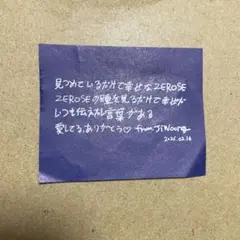 見つめているだけで幸せなZEROSE
ZEROSEの瞳を見るだけで幸せが
いつも伝えたい言葉がある
愛してる、ありがとう♡ from JiWoong
2025.02.14